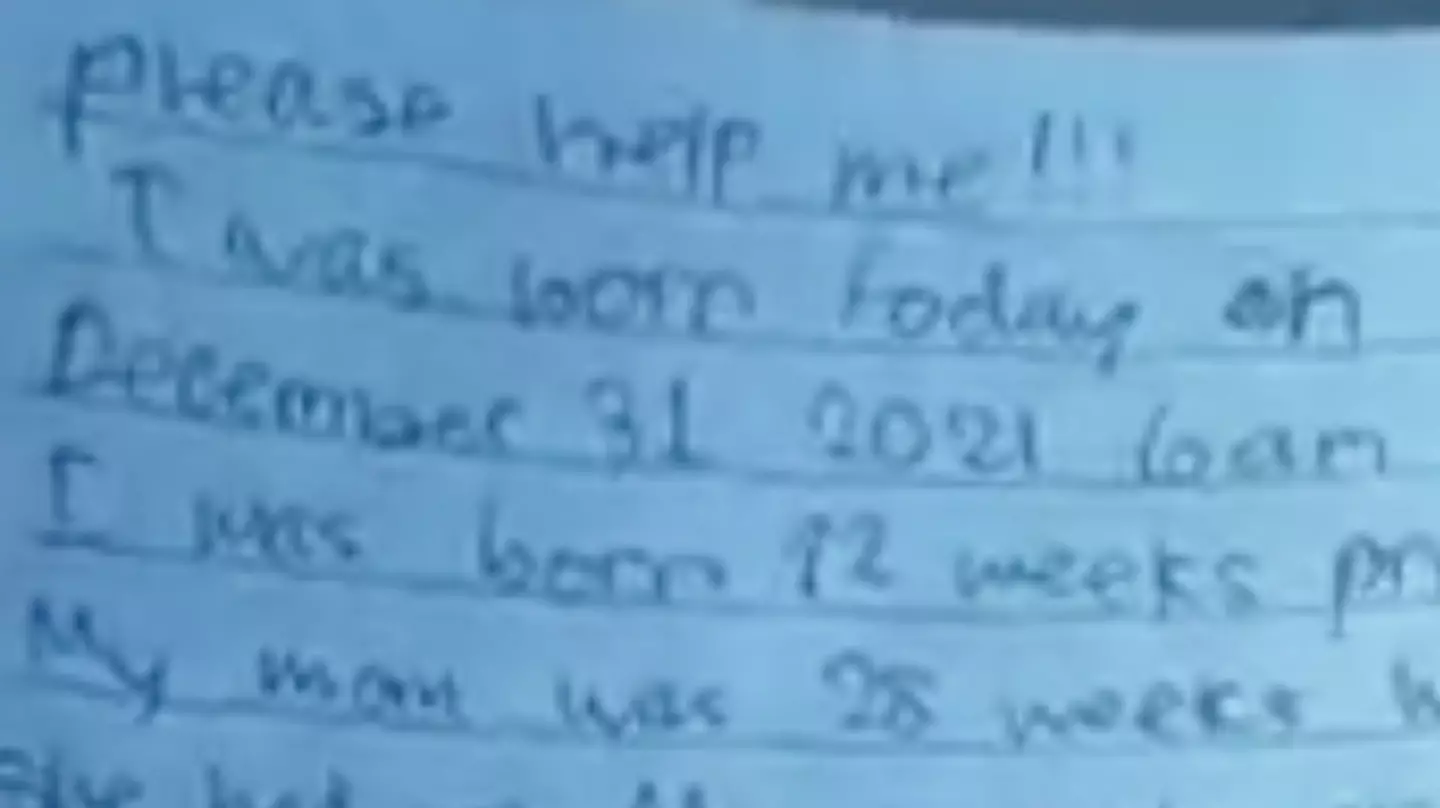 please help me!!!
I was born today on
December 31 2021 6am
I was born 12 weeks
My mom was 28 weeks